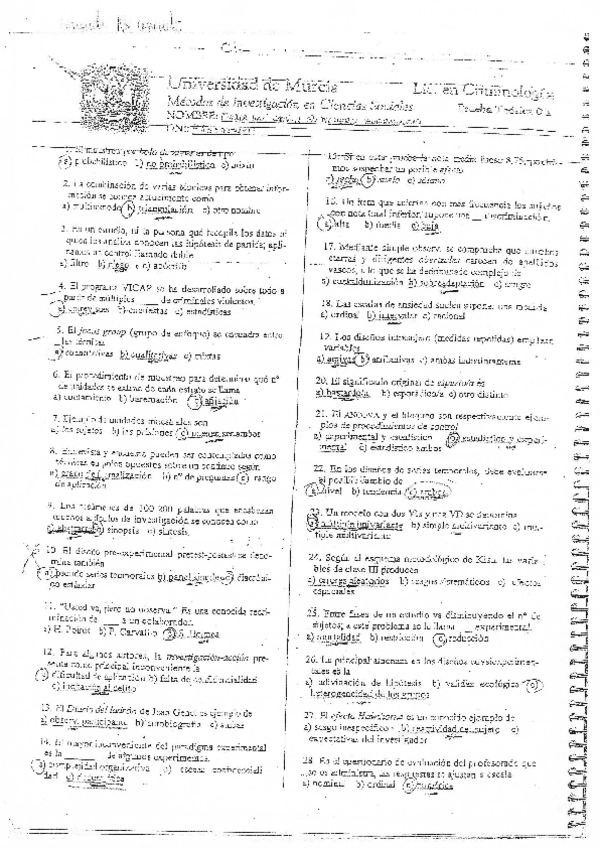 Universidad de Murcia Lic. en Criminología
Métodos de Investigación en Ciencias Sociales Prueba Teórica
NOMBRE:
a) probabilístico b) no probabilístico c) mixto
2. La combinación de varias técnicas para obtener infor-
mación se conoce actualmente como
a) multimétodo b) triangulación c) otro nombre
3. En un estudio, ni la persona que recopila los datos ni
quien los analiza conocen las hipótesis de partida; apli-
camos un control llamado doble
a) filtro b) ciego c) apócrifo
4. El programa VICAP se ha desarrollado sobre todo a
partir de múltiples ___ de criminales violentos.
a) entrevistas b) encuestas c) estadísticas
5. El focus group (grupo de enfoque) se encuadra entre
las técnicas
a) cuantitativas b) cualitativas c) mixtas
6. El procedimiento de muestreo para determinar qué nº
de unidades se extrae de cada estrato se llama
a) b) baremación c) afijación
7. Ejemplo de unidades muestrales son
a) los sujetos b) las prisiones c) pueden ser ambos
8. Entrevista y encuesta pueden ser contempladas como
técnicas en polos opuestos sobre un continuo según
a) grado de b) nº de preguntas c) rango
de aplicación
9. Los resúmenes de 100-200 palabras que encabezan
muchos artículos de investigación se conocen como
a) abstracts b) sinopsis c) síntesis
10. El diseño pre-experimental pretest-postest se deno-
mina también
a) pseudo series temporales b) panel simple c) diacróni-
co estándar
11. "Usted ve, pero no observa." Es una conocida recri-
minación de ___ a un colaborador.
a) H. Poirot b) P. Carvalho c) S. Holmes
12. Para algunos autores, la investigación-acción pre-
senta como principal inconveniente la
a) dificultad de aplicación b) falta de confidencialidad
c)
13. El Diario del ladrón de Jean Genet es ejemplo de
a) observ. participante b) autobiografía c) ambas
14. El mayor inconveniente del paradigma experimental
es la ___ de algunos experimentos.
a) complejidad organizativa c) escasa
dad
mos sospechar un posible efecto
a) techo b) suelo c)ádamo
16. Un ítem que aciertan con más frecuencia los sujetos
con nota final inferior, supone una ___ discriminación.
a) alta b) media c) baja
17. Mediante simple observ. se comprueba que muchos
etarras y dirigentes abertzales carecen de apellidos
vascos, a lo que se ha denominado complejo de
b) sobreadaptación c) sangre
18. Las escalas de ansiedad suelen suponer una medida
a) ordinal b) intervalar c) racional
19. Los diseños intrasujeto (medidas repetidas) emplean
variables
a) activas b) atributivas c) ambas indistintamente
20. El significado original de espurio/a es
a) bastardo/a b) esporádico/a c) otro distinto
21. El ANCOVA y el bloqueo son respectivamente ejem-
plos de procedimientos de control
a) experimental y estadístico b) estadístico y experi-
mental c) estadístico ambos
22. En los diseños de series temporales, debe evaluarse
el posible cambio de
a) nivel b) tendencia c) ambos
23. Un modelo con dos VIs y una VD se denomina
a) múltiple univariante b) simple multivariante c) múl-
tiple multivariante
24. Según el esquema metodológico de Kish, las varia-
bles de clase III producen
a) errores aleatorios b) sesgos sistemáticos c) efectos
especiales
25. Entre fases de un estudio va disminuyendo el nº de
sujetos; a este problema se le llama ___ experimental.
a) mortalidad b) restricción c) reducción
26. La principal amenaza en los diseños cuasiexperimen-
tales es la
a) adivinación de hipótesis b) validez ecológica c)
heterogeneidad de los grupos
27. El efecto Hawthorne es un conocido ejemplo de
a) sesgo inespecífico b) reactividad del sujeto c)
expectativas del investigador
28. En el cuestionario de evaluación del profesorado que
se os administra, las respuestas se ajustan a escala
a) nominal b) ordinal c) numérica